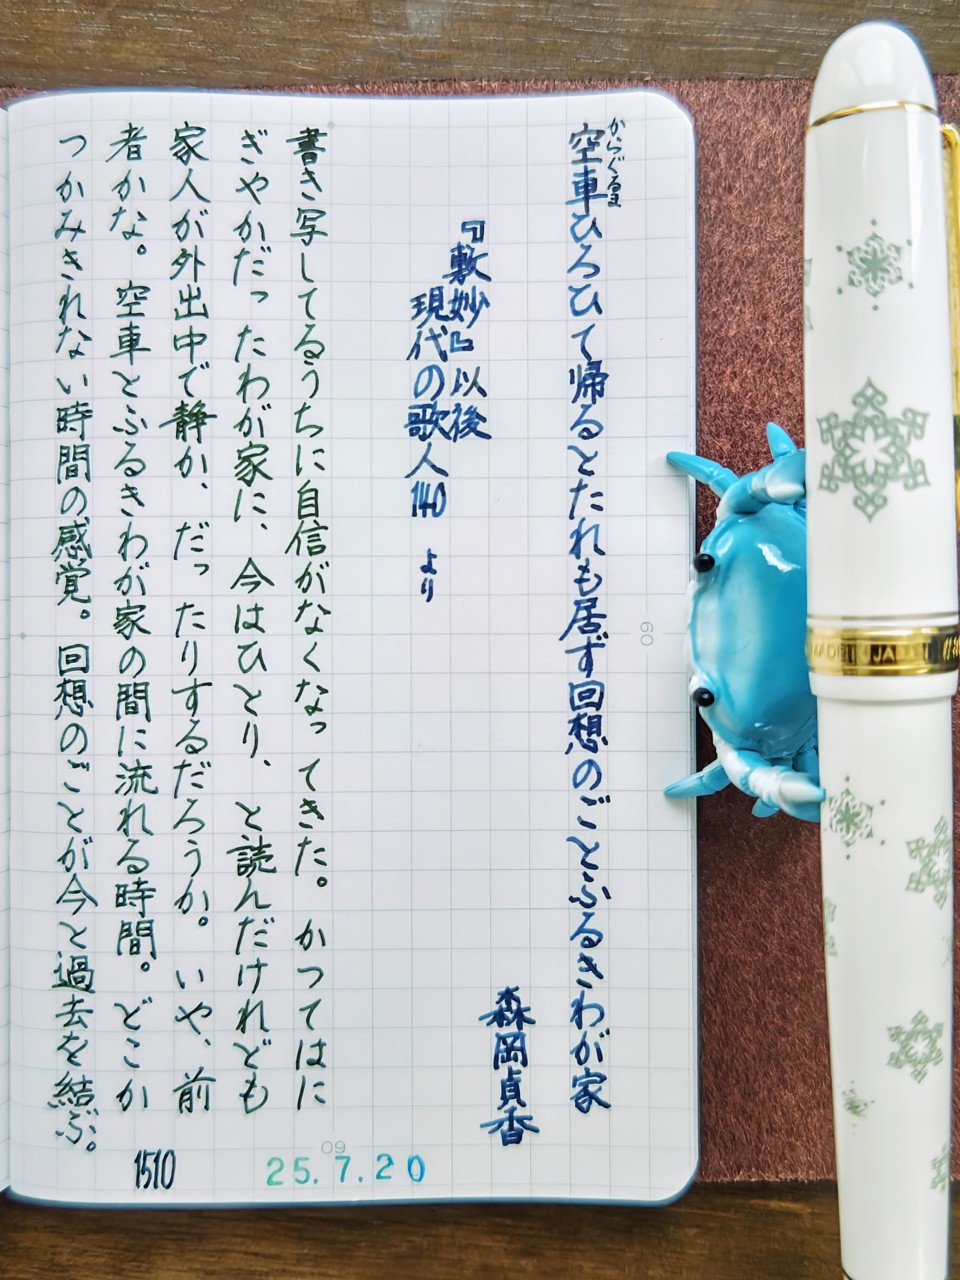 からぐるま
空車ひろひて帰るとたれも居ず回想のごとふるきわが家
森岡貞香
『敷妙』以後
現代の歌人140 より
書き写してるうちに自信がなくなってきた。かつてはに
ぎやかだったわが家に、今はひとり、と読んだけれども
家人が外出中で静か、だったりするだろうか。いや、前
者かな。空車とふるきわが家の間に流れる時間。どこか
つかみきれない時間の感覚。回想のごとが今と過去を結ぶ。
1510
25.7.20
09
60